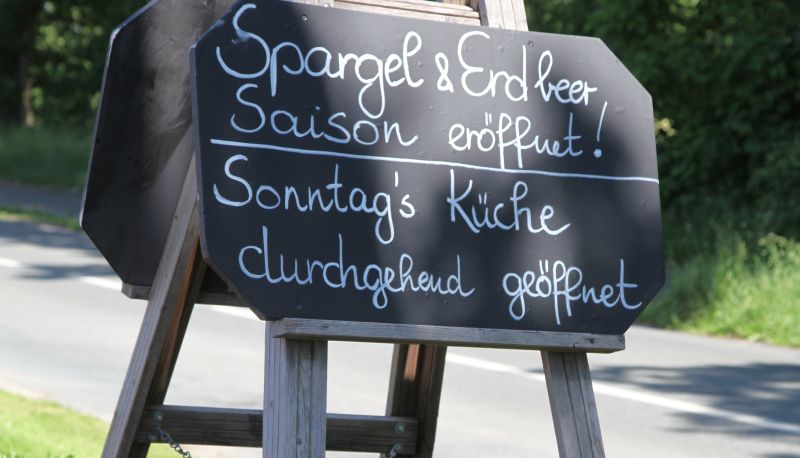 Spargel & Erdbeer
Saison eröffnet!
Sonntag's Küche
durchgehend geöffnet